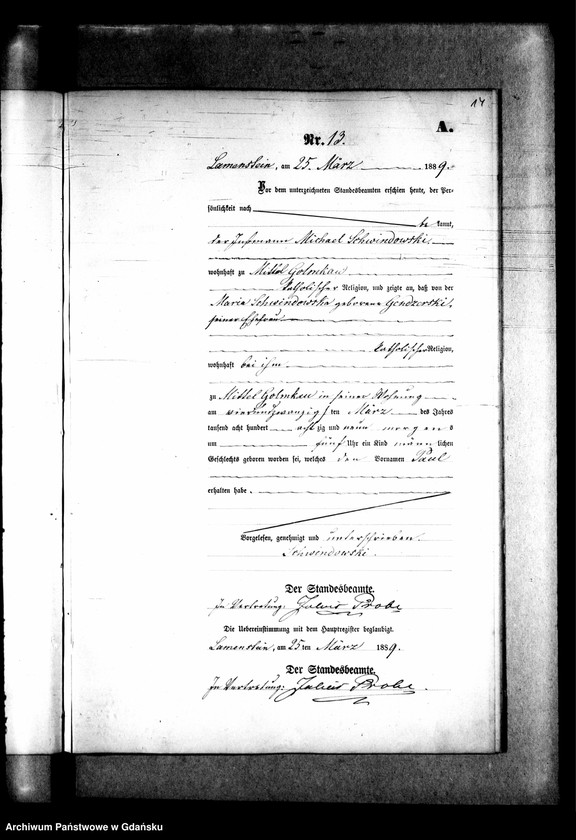 14
A.
Nr. 13.
Lamenstein, am 25. März 1889.
Vor dem unterzeichneten Standesbeamten erschien heute, der Per-
sönlichkeit nach
be kannt,
der Inßmann Michael Schwindowski,
wohnhaft zu Mittel Golmkau
katholischer Religion, und zeigte an, daß von der
Maria Schwindowska geborene Gendzerski,
seiner Ehefrau
katholischer Religion,
wohnhaft bei ihm
zu Mittel Golmkau in seiner Wohnung
am vierundzwanzigsten März des Jahres
tausend acht hundert achtzig und neun morgens
um fünf Uhr ein Kind männlichen
Geschlechts geboren worden sei, welches den Vornamen Paul
erhalten habe.
Vorgelesen, genehmigt und unterschrieben.
Schwindowski.
Der Standesbeamte.
In Vertretung: Julius Probe
Die Uebereinstimmung mit dem Hauptregister beglaubigt.
Lamenstein, am 25 ten März 1889.
Der Standesbeamte.
In Vertretung: Julius Probe.
Archiwum Państwowe w Gdańsku